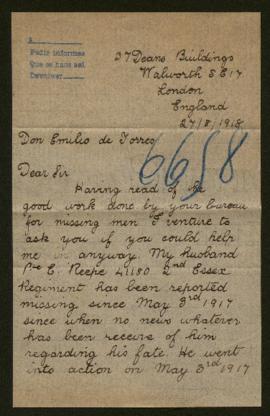 A
Pedir informes
Que se hace así
Devolver
37 Deans Buildings
Walworth S E 17
London
England
27/8/1918
Don Emilio de Torres
6658
Dear Sir
Having read of the
good work done by your bureau
for missing men I venture to
ask you if you could help
me in anyway. My husband
Pte C. Neepe 41180 2nd Essex
Regiment has been reported
missing since May 3rd 1917
since when no news whatever
has been receive of him
regarding his fate. He went
into action on May 3rd 1917